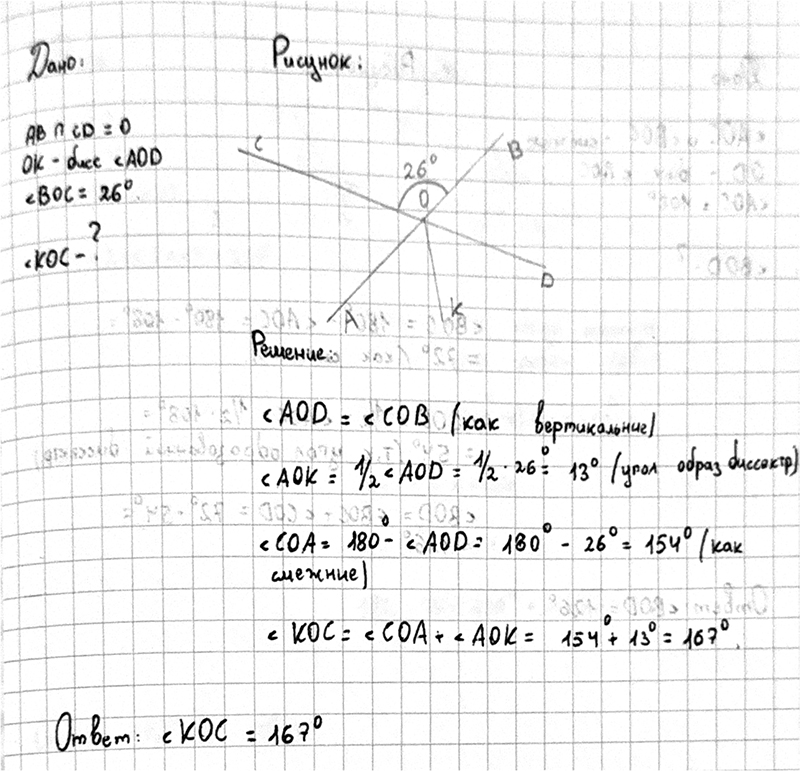 Дано:
Рисунок:
AB ∩ CD = O
OK - бисс <AOD
<BOC = 26°
<KOC - ?
C
B
26°
O
D
A
K
Решение:
<AOD = <COB (как вертикальние)
<AOK = 1/2 <AOD = 1/2 · 26° = 13° (угол образ биссектр)
<COA = 180° - <AOD = 180° - 26° = 154° (как
смежние)
<KOC = <COA + <AOK = 154° + 13° = 167°.
Ответ: <KOC = 167°